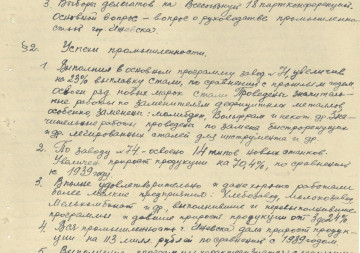 3. Выборы делегатов на Всесоюзную 18 партконференцию.
Основной вопрос – вопрос о руководстве промышленно-
стью гор. Ижевска.
§2. Успехи промышленности.
1. Выполнил в основном программу завод № 71, увеличив
на 23% выплавку стали, по сравнению с прошлым годом
освоен ряд новых марок стали. Проведены значитель-
ные работы по заменителям дефицитных металлов
особенно заменен молибден, Вольфрам и некот. др. Зна-
чительные работы проведены по замене быстрорежущих
и др. легированных сталей для инструмента и др.
2. По заводу № 74 – освоено 14 типов новых станков.
Увеличен прирост продукции на 70,4%, по сравнению
с 1939 году
3. Вполне удовлетворительно и даже хорошо работали
более мелкие предприятия: Хлебозавод, Молокозавод
Мелькомбинат и др. выполнившие и перевыполнившие
программы и давшие прирост продукции от 3 до 24%
4. Вся промышленность г. Ижевска дала прирост проду-
кции на 113 милл. рублей по сравнению с 1939 годом
5. Выполнение программы